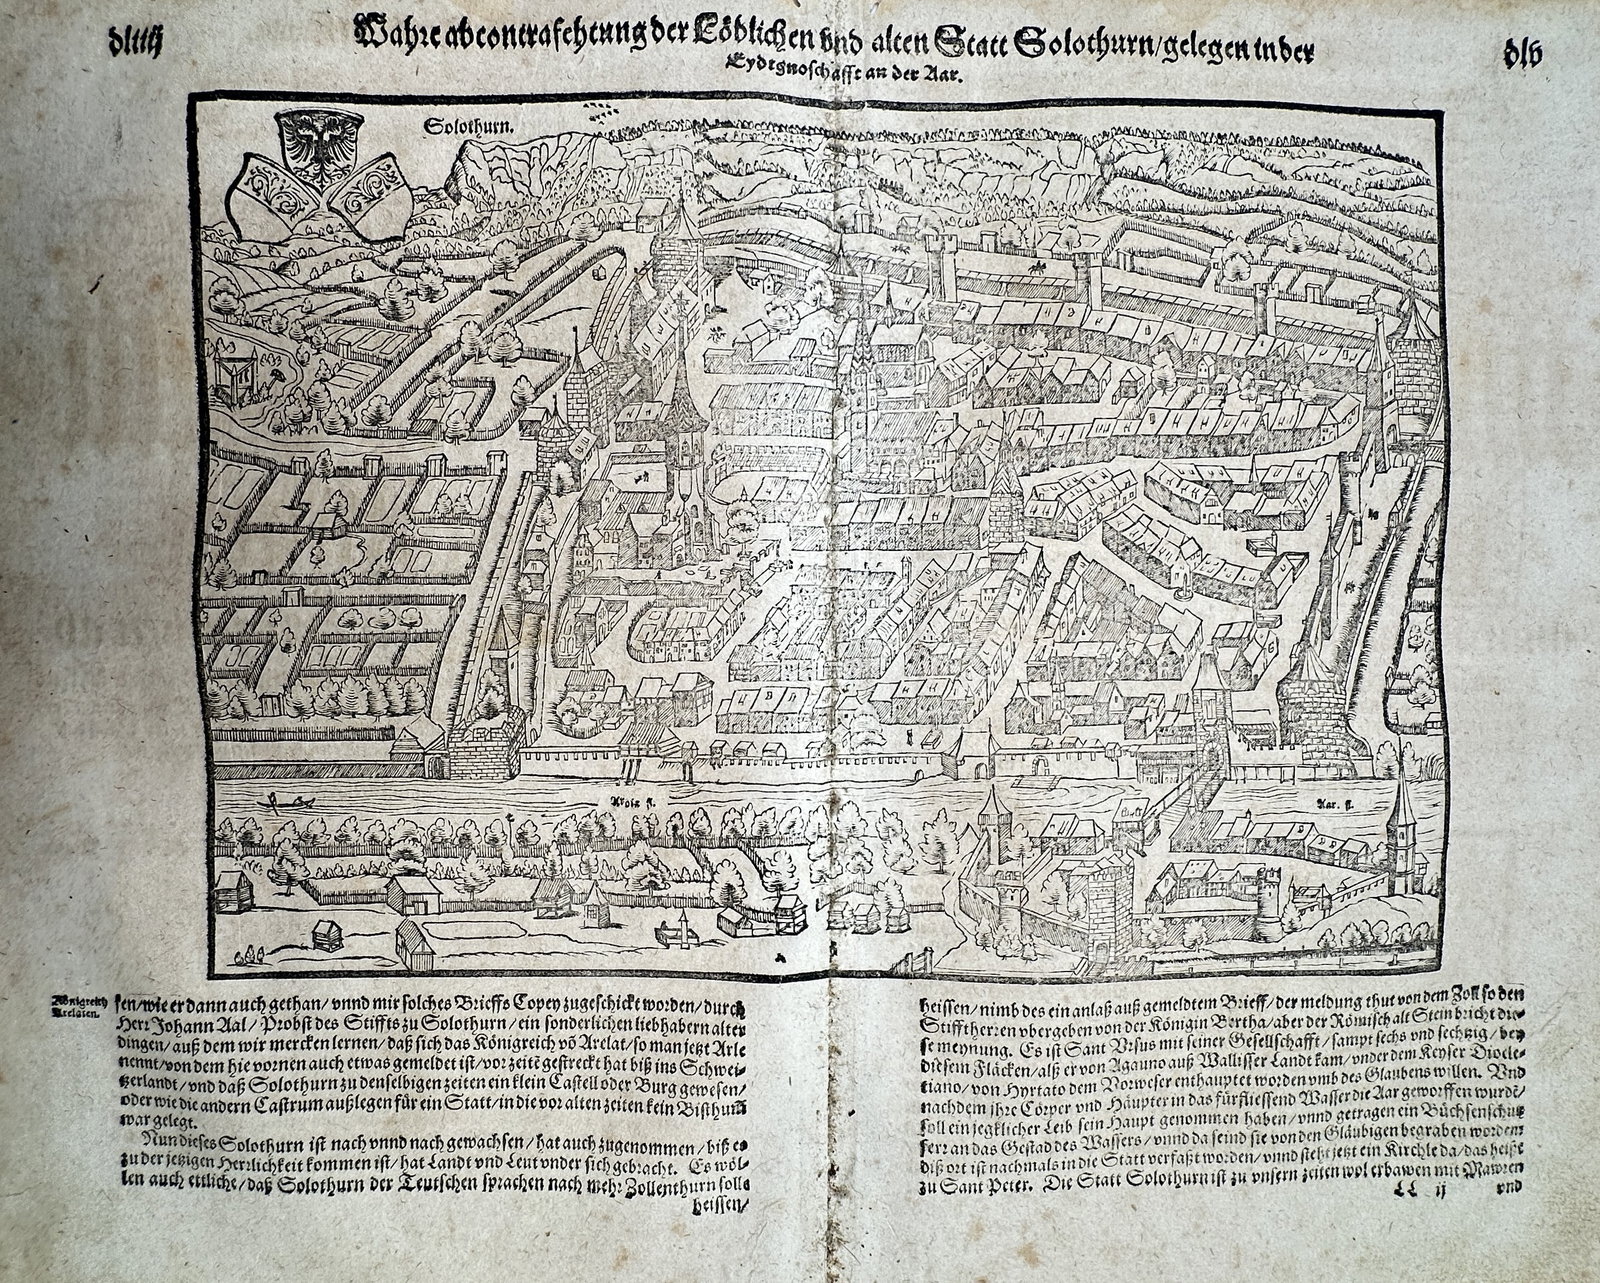 dliiij
Wahre abcontrafehtung der Löblichen vnd alten Statt Solothurn/gelegen in der
dlv
Eydtgnoschafft an der Aar.
Solothurn.
Arola fl.
Aar. fl.
Königreich
Arelaten.
sen/wie er dann auch gethan/ vnnd mir solches Brieffs Copey zugeschickt worden/ durch
Herr Johann Aal/ Probst des Stiffts zu Solothurn/ ein sonderlichen liebhabern alter
dingen/ auß dem wir mercken lernen/ daß sich das Königreich võ Arelat/ so man jetzt Arle
nennt/ von dem hie vornen auch etwas gemeldet ist/ vor zeitẽ gestreckt hat biß ins Schwei-
tzerlandt/ vnd daß Solothurn zu denselbigen zeiten ein klein Castell oder Burg gewesen/
oder wie die andern Castrum außlegen für ein Statt/ in die vor alten zeiten kein Bisthumb
war gelegt.
Nun dieses Solothurn ist nach vnnd nach gewachsen/ hat auch zugenommen/ biß es
zu der jetzigen Herrlichkeit kommen ist/ hat Landt vnd Leut vnder sich gebracht. Es wöl-
len auch ettliche/ daß Solothurn der Teutschen sprachen nach mehr Zollenthurn solle
heissen/
heissen/ nimb des ein anlaß auß gemeldtem Brieff/ der meldung thut von dem Zoll so den
Stifftherren vbergeben von der Königin Bertha/ aber der Römisch alt Stein bricht die-
se meynung. Es ist Sant Vrsus mit seiner Gesellschafft/ sampt sechs vnd sechtzig/ bey
diesem Fläcken/ alß er von Agauno auß Wallisser Landt kam/ vnder dem Keyser Diocle-
tiano/ von Hyrtato dem Vorweser enthauptet worden vmb des Glaubens willen. Vnd
nachdem jhre Cörper vnd Häupter in das fürfliessend Wasser die Aar geworffen wurdẽ/
soll ein jegklicher Leib sein Haupt genommen haben/ vnnd getragen ein Büchsenschutz
ferr an das Gestad des Wassers/ vnnd da seind sie von den Gläubigen begraben worden:
diß ort ist nachmals in die Statt verfaßt worden/ vnnd steht jetzt ein Kirchle da/ das heißt
zu Sant Peter. Die Statt Solothurn ist zu vnsern zeiten wol erbawen mit Mawren
LL ij
vnd